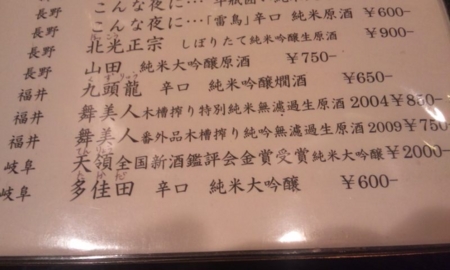 長野 こんな夜に…
長野 こんな夜に…「雷鳥」辛口 純米原酒 ¥600-
長野 北光正宗 しぼりたて純米吟醸生原酒 ¥900-
長野 山田 純米大吟醸原酒 ¥750-
福井 九頭龍 辛口 純米大吟醸燗酒 ¥650-
福井 舞美人 木槽搾り特別純米無濾過生原酒 2004 ¥850-
福井 舞美人 番外品木槽搾り純吟無濾過生原酒 2009 ¥750
岐阜 天領 全国新酒鑑評会金賞受賞純米大吟醸 ¥2000-
岐阜 多佳田 辛口 純米大吟醸 ¥600-